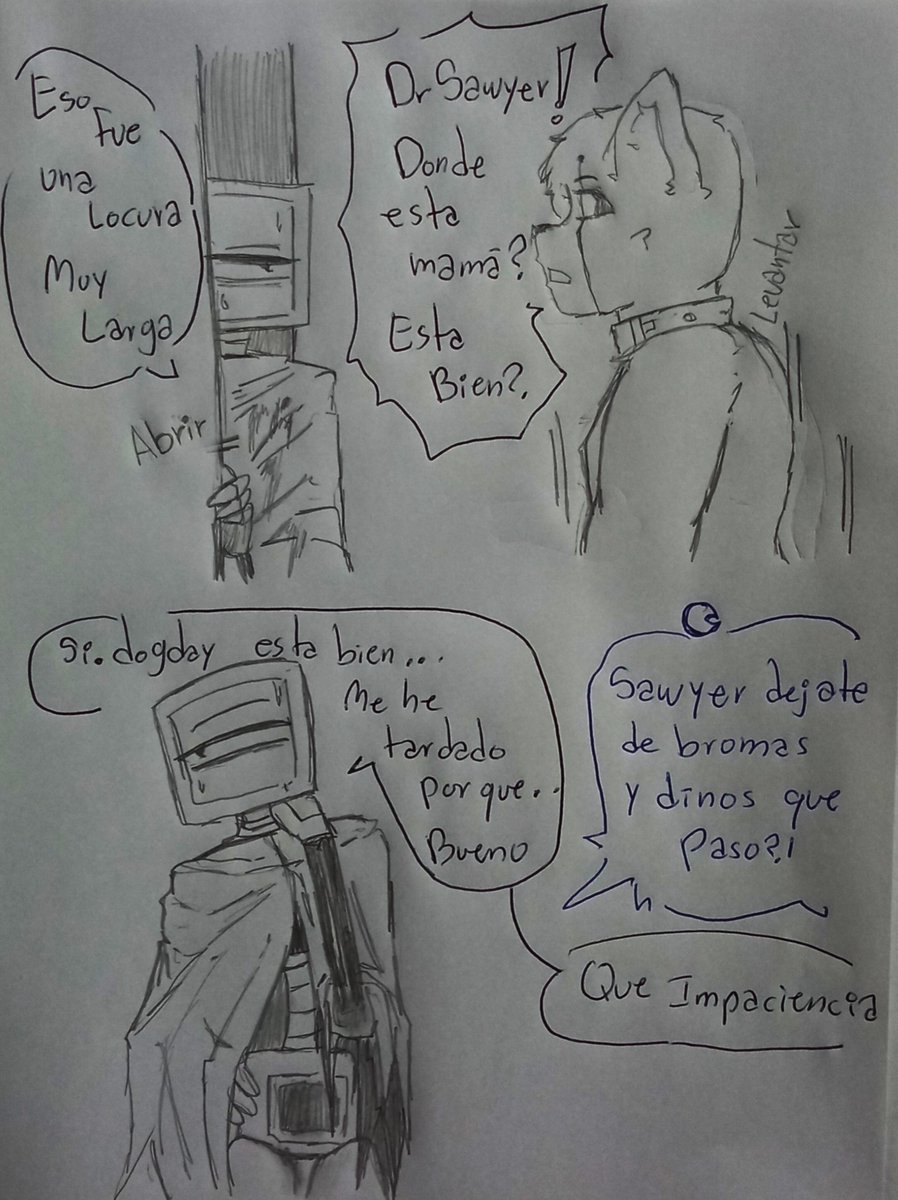 Eso
Fue
una
Locura
Muy
Larga
Abrir
Dr Sawyer!
Donde
esta
mamá?
Esta
Bien?.
Levantar
Si. dogday esta bien...
Me he
tardado
por que..
Bueno
Sawyer dejate
de bromas
y dinos que
Paso?!
Que Impaciencia